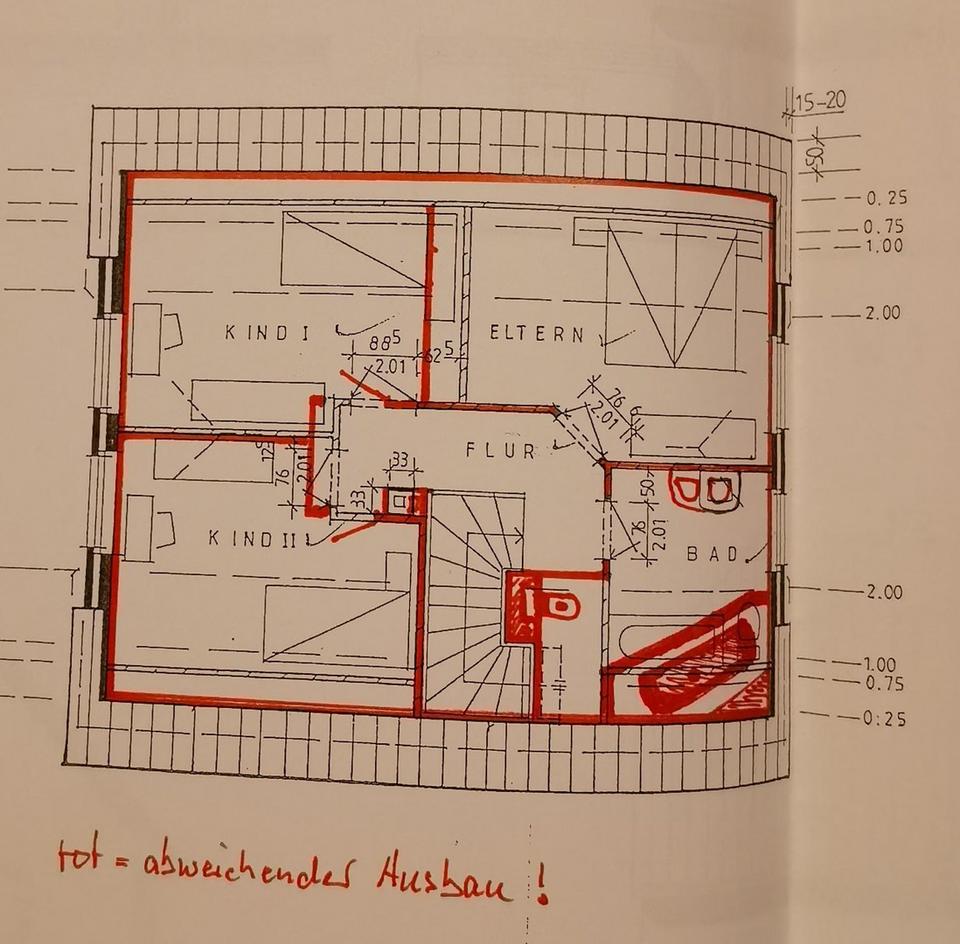 15-20
50
0.25
0.75
1.00
2.00
KIND I
ELTERN
88⁵
62⁵
2.01
76
2.01
FLUR
12⁵
76
2.01
33
33
50
76
2.01
KIND II
BAD
2.00
1.00
0.75
0:25
rot = abweichender Ausbau !